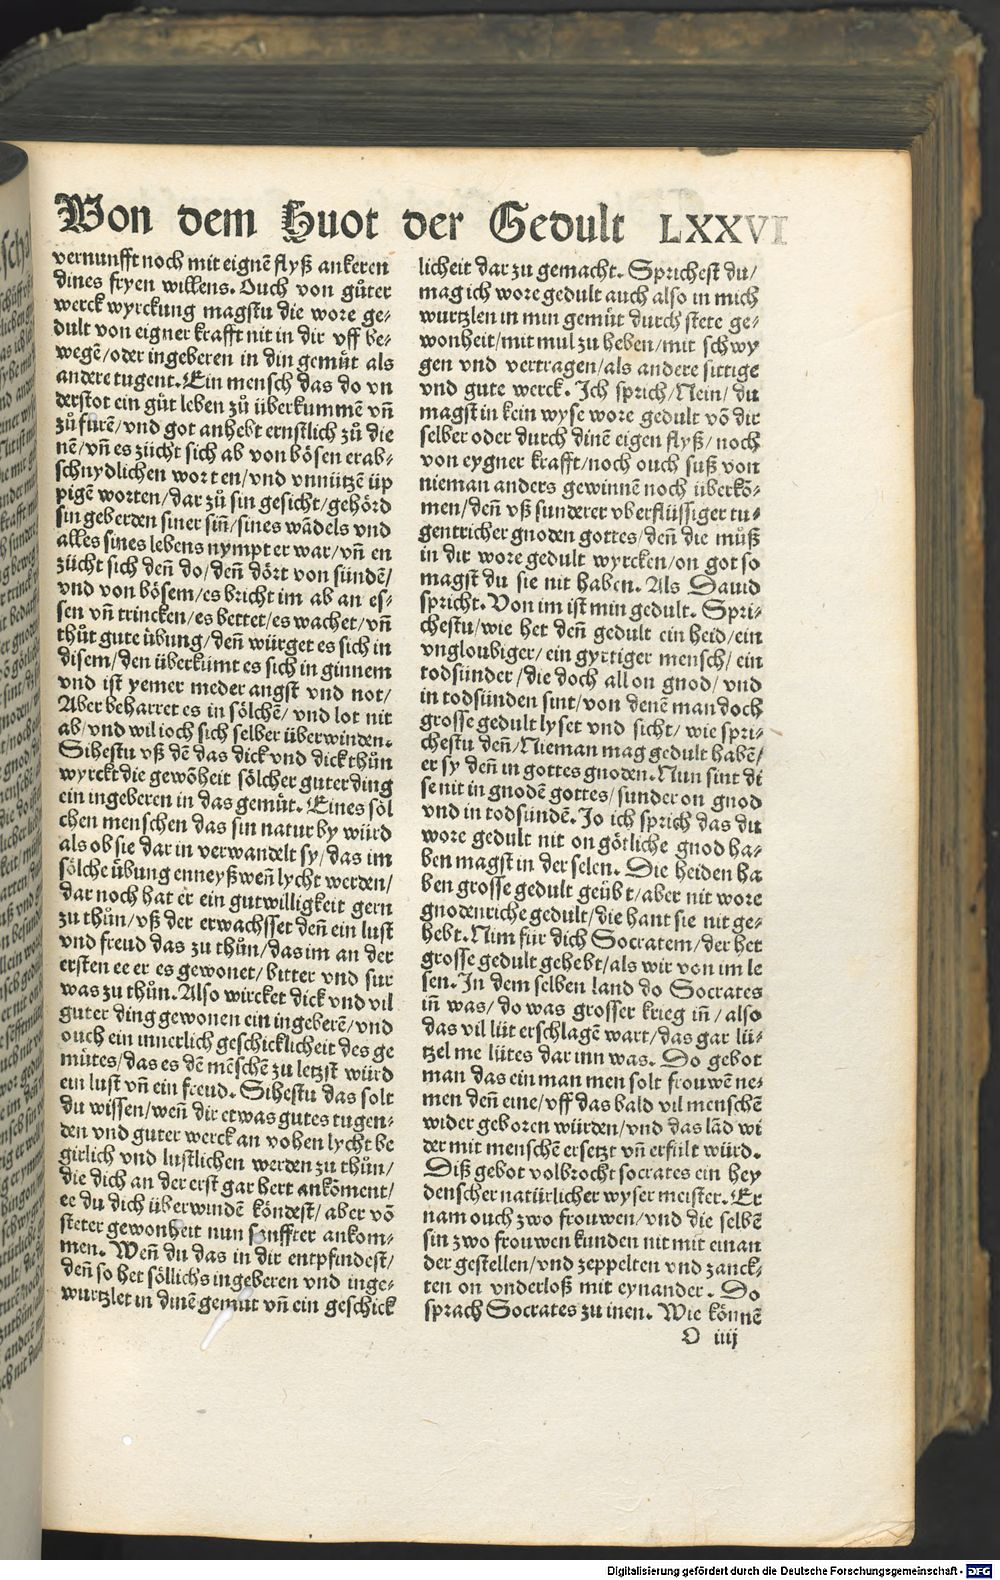 Von dem Huot der Gedult LXXVI
vernunfft noch mit eignē flyß ankeren
dines fryen willens. Ouch von gůter
werck wyrckung magstu die wore ge-
dult von eigner krafft nit in dir vff be-
wegē/oder ingeberen in din gemüt als
andere tugent. Ein mensch das do vn
derstot ein gůt leben zů überkummē vñ
zů fürē/vnd got anhebt ernstlich zů die
nē/vñ es zücht sich ab von bösen erab-
schnydlichen worten/vnd vnnützē üp
pigē worten/dar zů sin gesicht/gehörd
sin geberden siner siñ/sines wādels vnd
alles sines lebens nympt er war/vñ en
zücht sich deñ do/deñ dört von sündē/
vnd von bösem/es bricht im ab an es-
sen vñ trincken/es bettet/es wachet/vñ
thůt gute übung/deñ würget es sich in
disem/den überkumt es sich in ginnem
vnd ist yemer meder angst vnd not/
Aber beharret es in sölchē/vnd lot nit
ab/vnd wil ioch sich selber überwinden.
Sihestu vß dē das dick vnd dick thůn
wyrckt die gewōheit sölcher guter ding
ein ingeberen in das gemüt. Eines söl
chen menschen das sin natur by würd
als ob sie dar in verwandelt sy/das im
sölche übung enneyßweñ lycht werden/
dar noch hat er ein gutwilligkeit gern
zu thůn/vß der erwachsset deñ ein lust
vnd freud das zu thůn/das im an der
ersten ee er es gewonet/bitter vnd sur
was zu thůn. Also wircket dick vnd vil
guter ding gewonen ein ingeberē/vnd
ouch ein innerlich geschicklicheit des ge
mütes/das es dē mēschē zu letzst würd
ein lust vñ ein freud. Sihestu das solt
du wissen/weñ dir etwas gutes tugen-
den vnd guter werck an vohen lycht be
girlich vnd lustlichen werden zu thůn/
die dich an der erst gar hert ankōment/
ee du dich überwindē köndest/aber vō
steter gewonheit nun sonffter ankom-
men. Weñ du das in dir entpfindest/
deñ so het söllichs ingeberen vnd inge-
wurtzlet in dinē gemüt vñ ein geschick
licheit dar zu gemacht. Sprichest du/
mag ich wore gedult auch also in mich
wurtzlen in min gemüt durch stete ge-
wonheit/mit mul zu heben/mit schwy
gen vnd vertragen/als andere sittige
vnd gute werck. Ich sprich/Nein/du
magst in kein wyse wore gedult vō dir
selber oder durch dinē eigen flyß/noch
von eygner krafft/noch ouch suß von
nieman anders gewinnē noch überkō-
men/deñ vß sunderer vberflüssiger tu-
gentricher gnoden gottes/deñ die müß
in dir wore gedult wyrcken/on got so
magst du sie nit haben. Als Dauid
spricht. Von im ist min gedult. Spri-
chestu/wie het deñ gedult ein heid/ein
vngloubiger/ein gyrtiger mensch/ein
todsünder/die doch all on gnod/vnd
in todsünden sint/von denē man doch
grosse gedult lyset vnd sicht/wie spri-
chestu deñ/Nieman mag gedult habē/
er sy deñ in gottes gnoden. Nun sint di
se nit in gnodē gottes/sunder on gnod
vnd in todsündē. Jo ich sprich das du
wore gedult nit on götliche gnod ha-
ben magst in der selen. Die heiden ha
ben grosse gedult geübt/aber nit wore
gnodenriche gedult/die hant sie nit ge-
hebt. Nim für dich Socratem/der het
grosse gedult gehebt/als wir von im le
sen. In dem selben land do Socrates
iñ was/do was grosser krieg iñ/also
das vil lüt erschlagē wart/das gar lü-
tzel me lütes dar inn was. Do gebot
man das ein man men solt frouwē ne-
men deñ eine/vff das bald vil menschē
wider geboren würden/vnd das lād wi
der mit menschē ersetzt vñ erfült würd.
Diß gebot volbrocht socrates ein hey
denscher natürlicher wyser meister. Er
nam ouch zwo frouwen/vnd die selbē
sin zwo frouwen kunden nit mit einan
der gestellen/vnd zeppelten vnd zanck-
ten on vnderloß mit eynander. Do
sprach Socrates zu inen. Wie könnē
O iiij
Digitalisierung gefördert durch die Deutsche Forschungsgemeinschaft - DFG